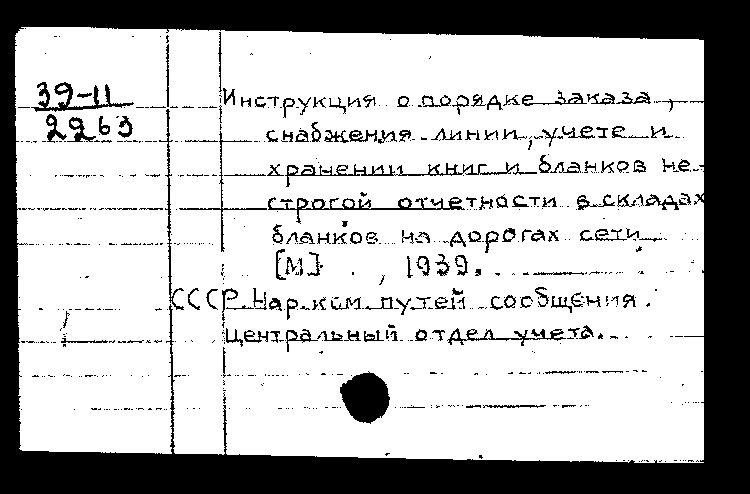 39-11
2263
Инструкция о порядке заказа,
снабжения линии, учете и
хранении книг и бланков не-
строгой отчетности в складах
бланков на дорогах сети.
[М] . , 1939.
СССР. Нар.ком. путей сообщения.
Центральный отдел учета.